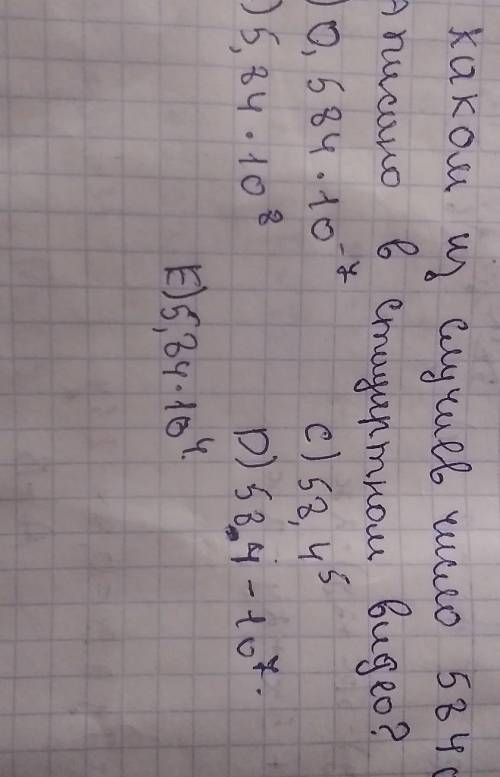 каком из случаев число 584
писано в стандартном видео?
) 0,584 · 10⁻⁷ C) 58,4⁵
) 5,84 · 10⁸ D) 58,4 - 10⁷.
E) 5,84 · 10⁴.